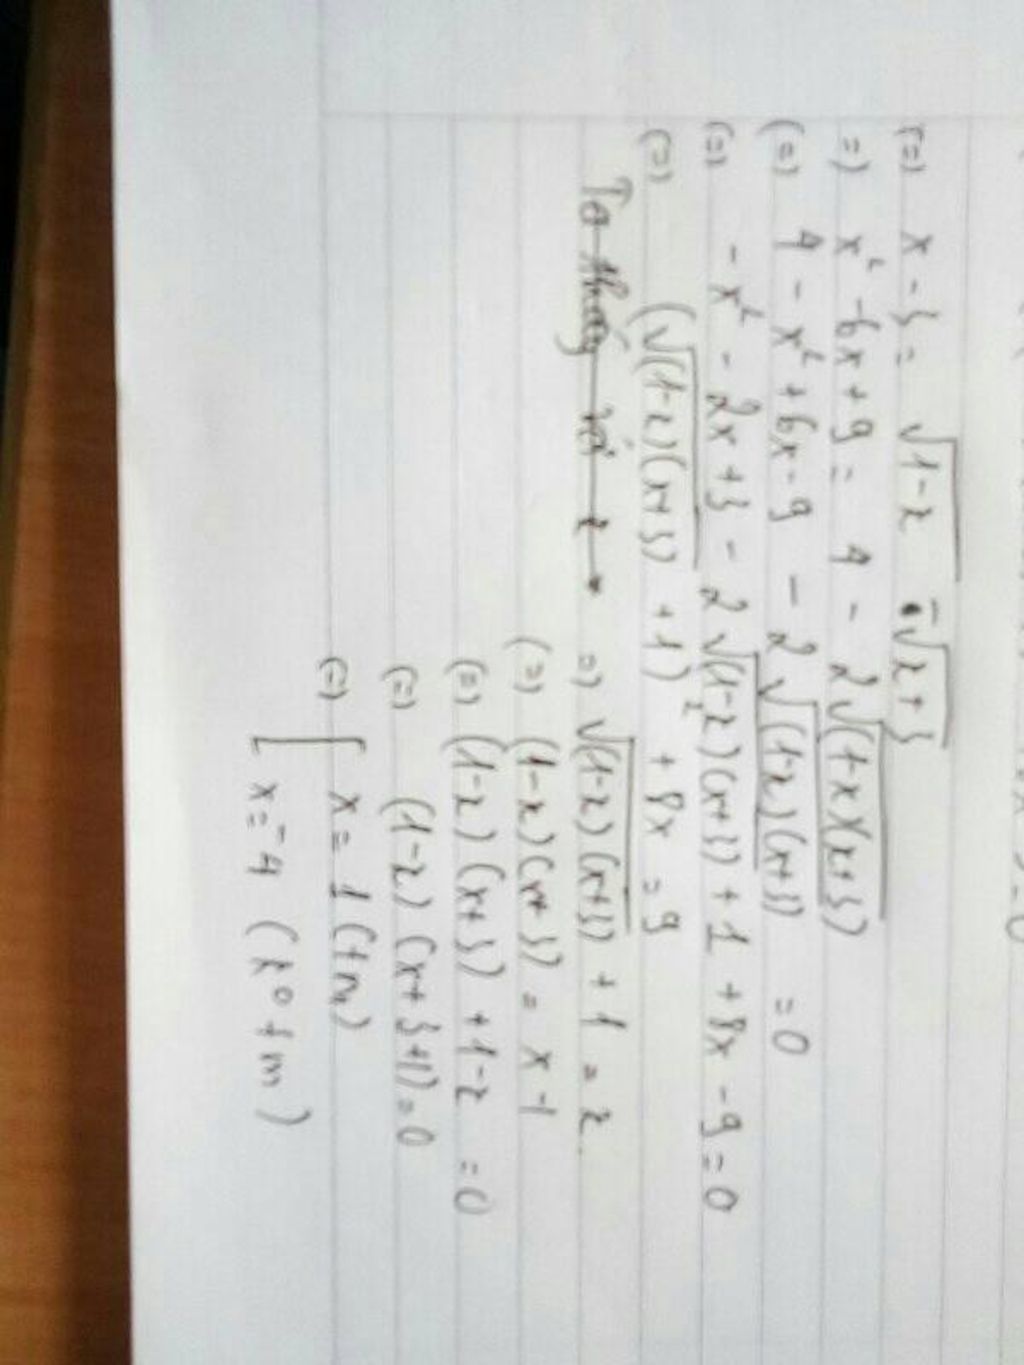 (=) x - 3 = √(1-x) - √(x+3)
=) x² - 6x + 9 = 4 - 2√((1-x)(x+3))
(=) 4 - x² + 6x - 9 - 2√((1-x)(x+3)) = 0
(=) - x² - 2x + 3 - 2√((1-x)(x+3)) + 1 + 8x - 9 = 0
(=) (√((1-x)(x+3)) + 1)² + 8x = 9
Ta thấy với x =) √((1-x)(x+3)) + 1 = x
(=) (1-x)(x+3) = x - 1
(=) (1-x)(x+3) + 1-x = 0
(=) (1-x)(x+3+1) = 0
(=) [ x = 1 (tm)
x = -4 (k⁰ tm)